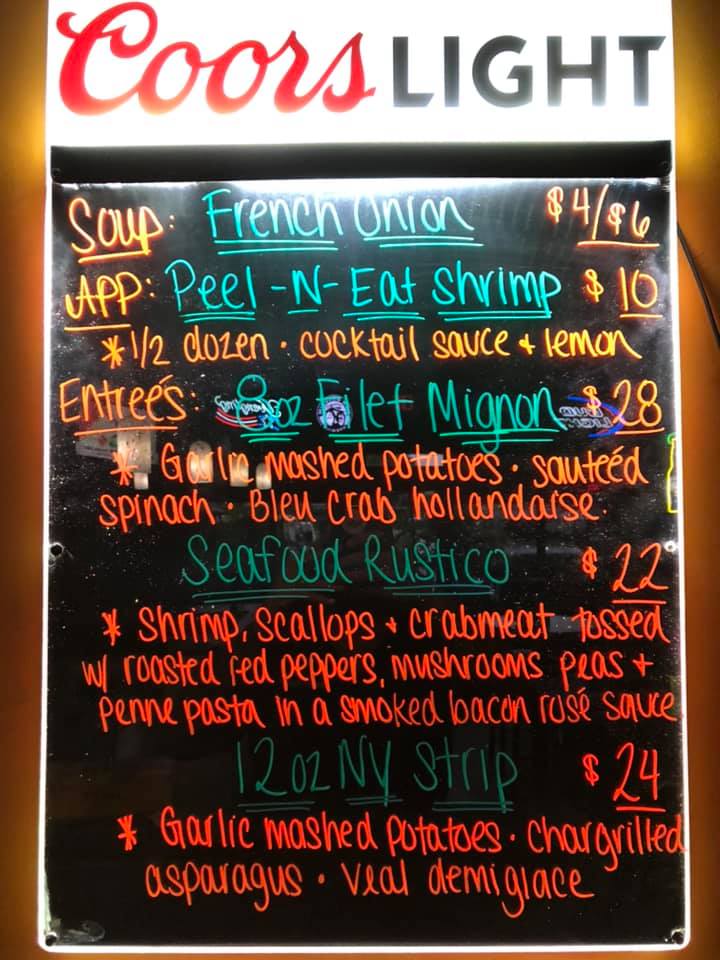 Coors LIGHT
Soup: French Onion $4/$6
APP: Peel-N-Eat Shrimp $10
*1/2 dozen · cocktail sauce + lemon
Entreés: 8oz Filet Mignon $28
* Garlic mashed potatoes · sauteéd
spinach · Bleu Crab hollandaise.
Seafood Rustico $22
* Shrimp, Scallops + crabmeat tossed
w/ roasted red peppers, mushrooms peas +
penne pasta in a smoked bacon rosé sauce
12oz NY Strip $24
* Garlic mashed potatoes · chargrilled
asparagus · veal demiglace